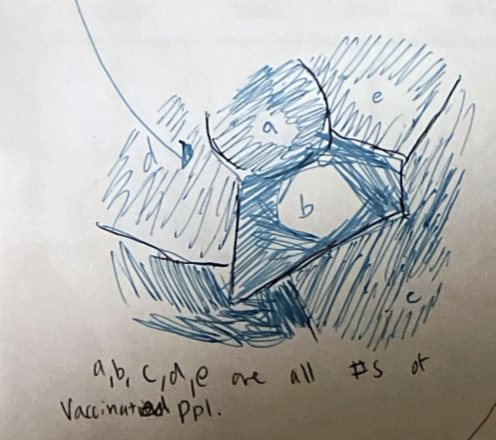 a
e
d
b
c
a,b, c,d,e are all #s of
Vaccinated ppl.